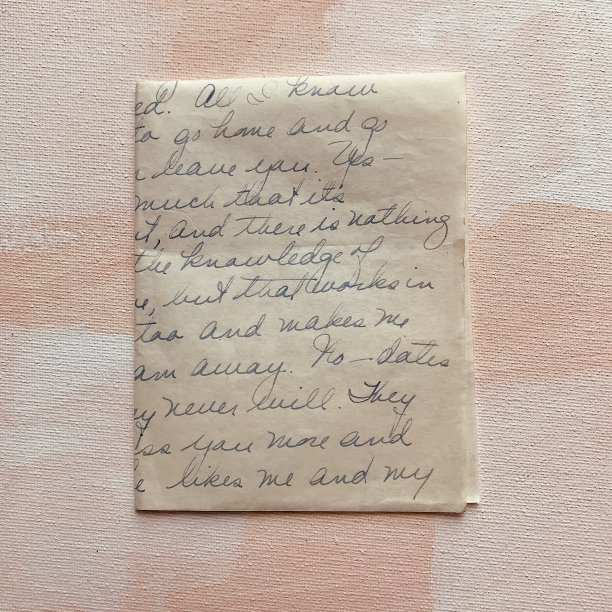 ed. All I know
to go home and go
leave you. Yes—
much that it's
it, and there is nothing
the knowledge of
e, but that works in
too and makes me
am away. No—dates
y never will. They
iss you more and
e likes me and my